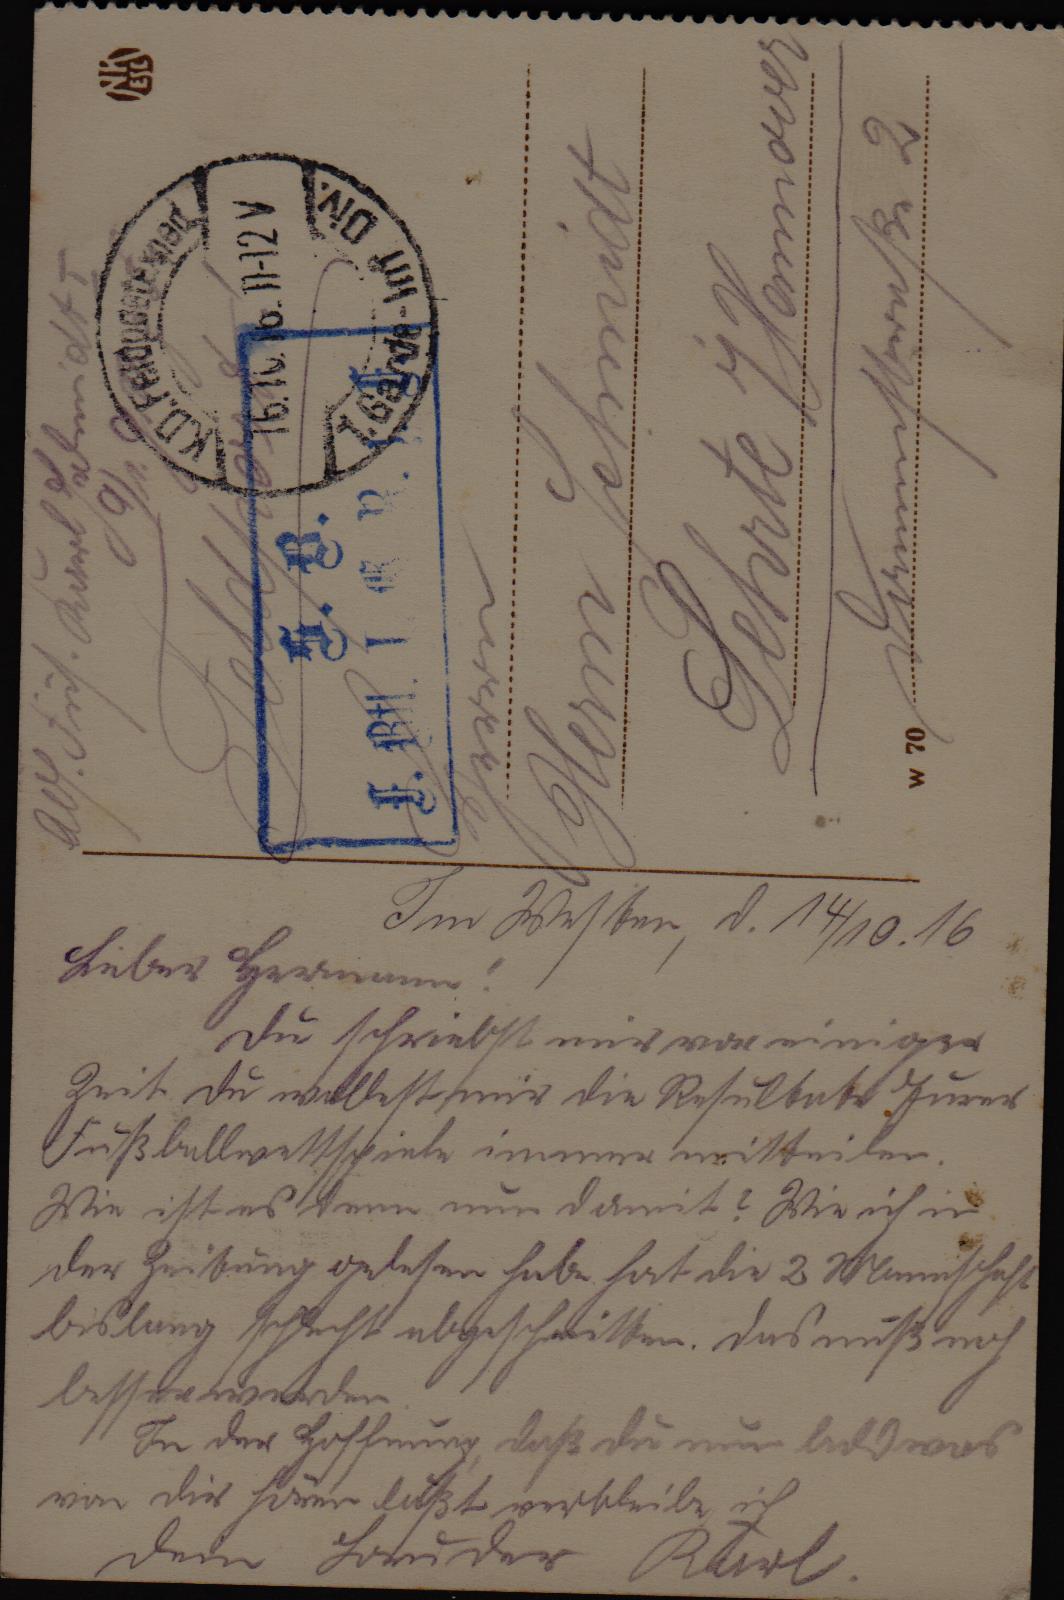 Abs. Füs. Karl Schmidt I
K.D. Feldpostexped.
1. Garde-Inf. Div.
16.10.16. 11-12 V
S. B.
I. Btl.
Feldpost
Herrn
Hermann Schmidt
Lehrte i. Hannover
W 70
Im Westen, d. 14/10.16
Lieber Hermann!
Du schriebst mir vor einiger
Zeit Du wolltest mir die Resultate Eurer
Fußballwettspiele immer mitteilen.
Wie ist es denn nun damit? Wie ich in
der Zeitung gelesen habe hat die 2 Mannschaft
bislang schlecht abgeschnitten. Das muß noch
besser werden.
In der Hoffnung, daß Du nun bald was
von dir hören läßt verbleibe ich
Dein Bruder Karl.